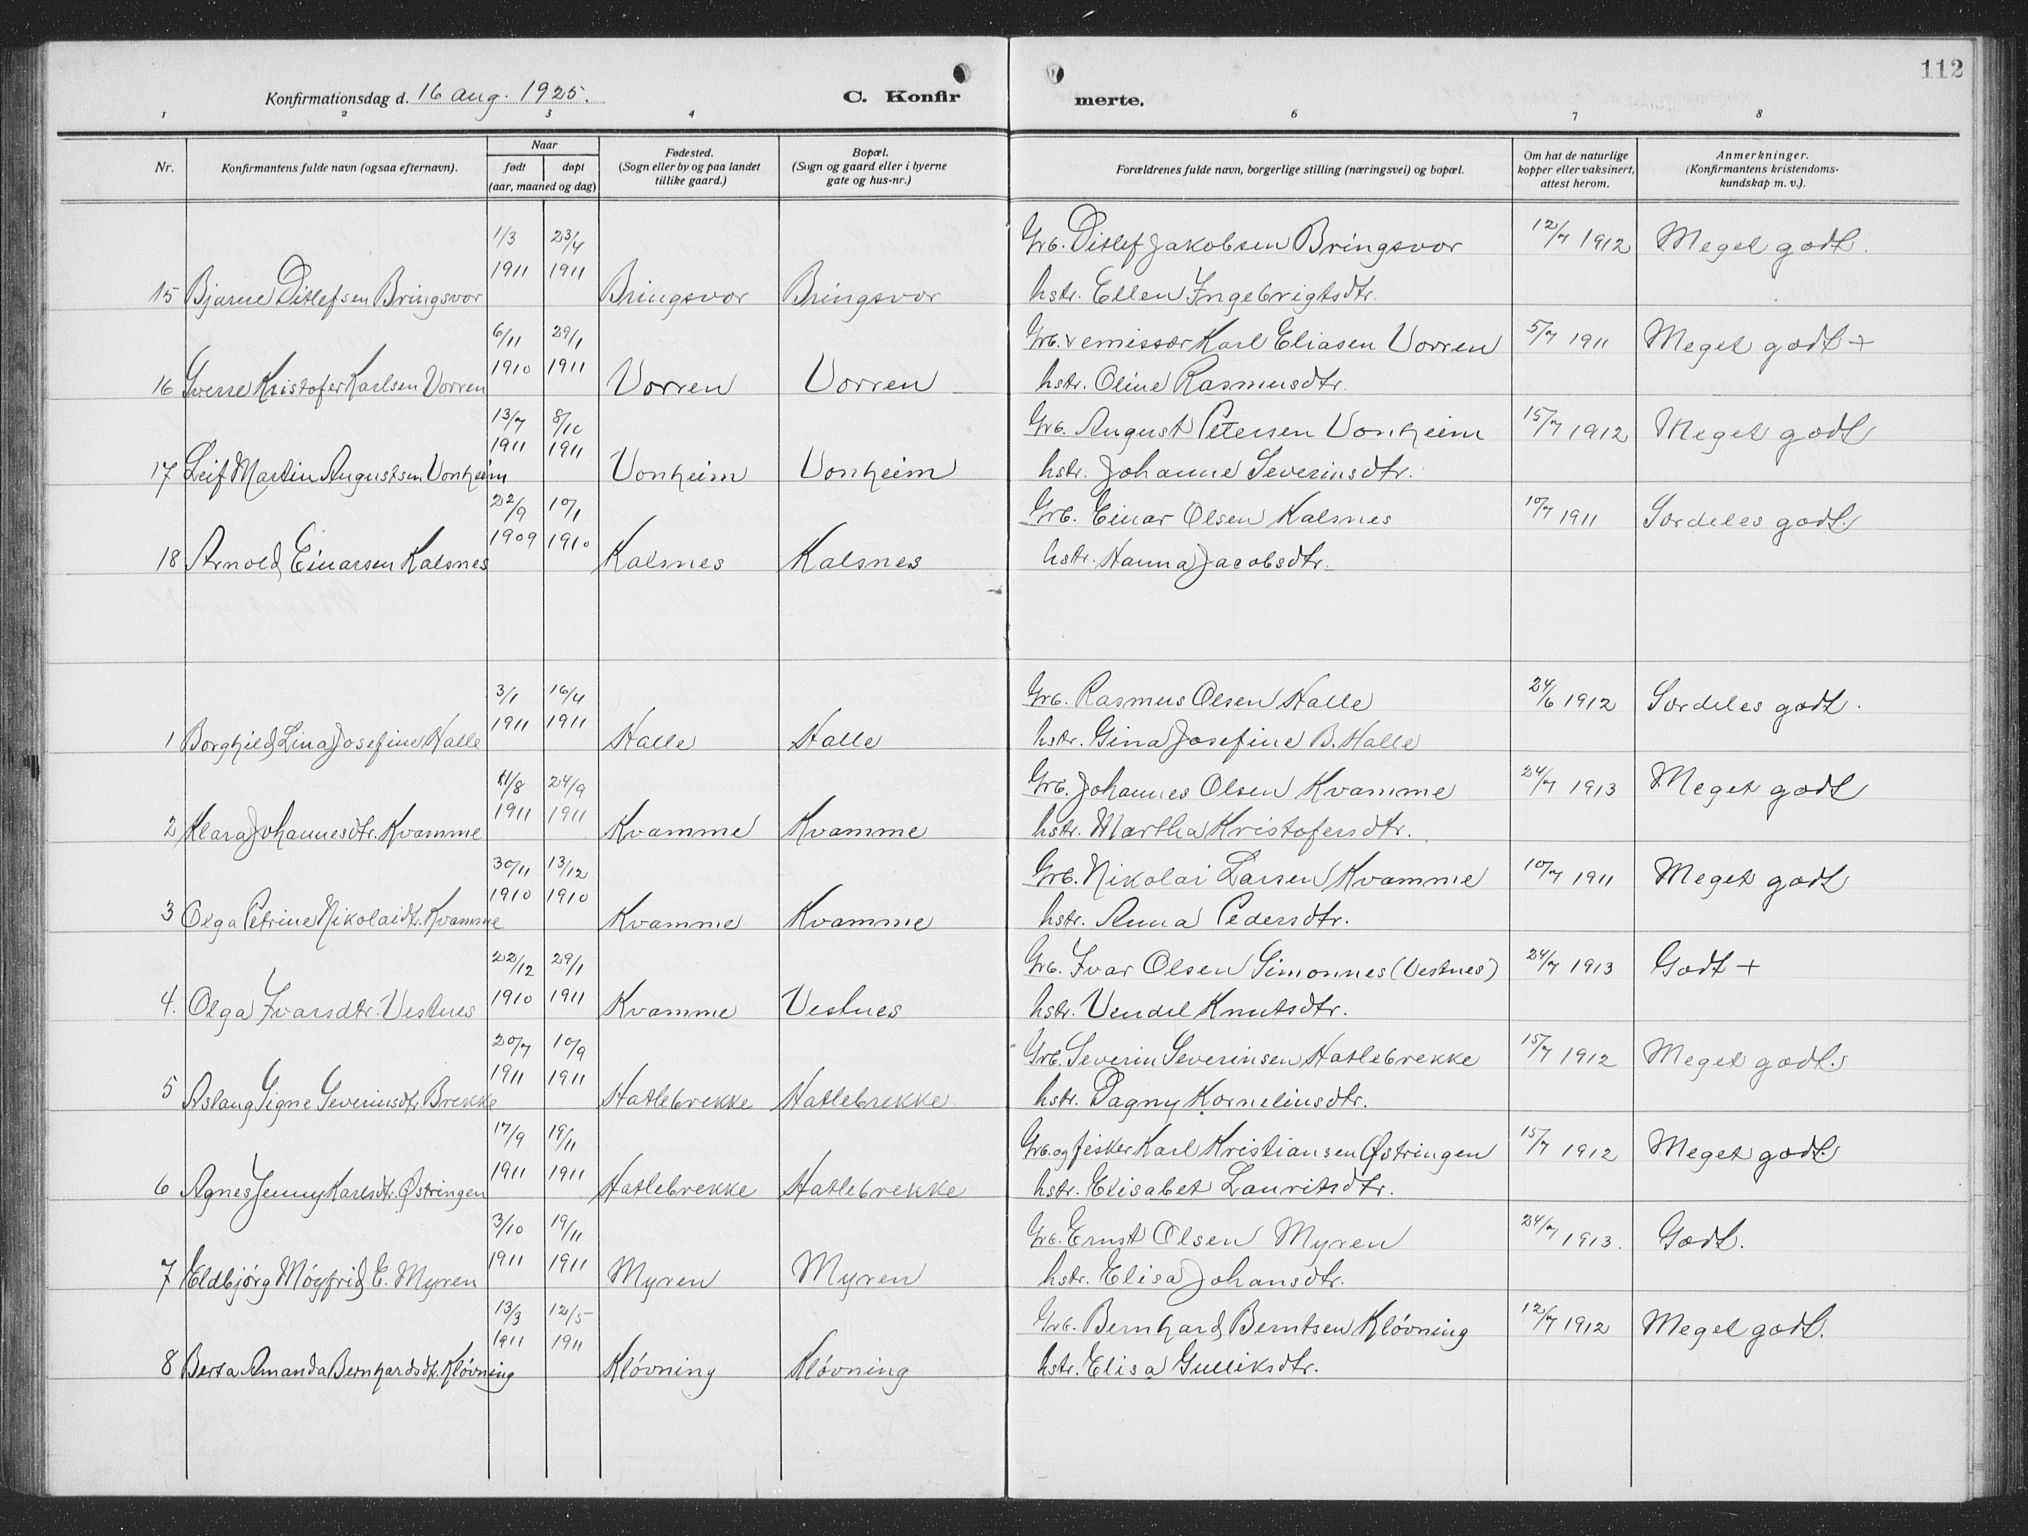 112
Konfirmationsdag d. 16 aug. 1925. C. Konfir merte.
1 2 3 4 6 7 8
Nr. Konfirmantens fulde navn (ogsaa efternavn). Naar født døpt (aar, maaned og dag) Fødested. (Sogn eller by og paa landet tillike gaard.) Bopæl. (Sogn og gaard eller i byerne gate og hus-nr.) Forældrenes fulde navn, borgerlige stilling (næringsvei) og bopæl. Om hat de naturlige kopper eller vaksinert, attest herom. Anmerkninger. (Konfirmantens kristendoms-kundskap m. v.).
1/3 23/4 Grb. Ditlef Jakobsen Bringsvor 12/7 1912 Meget godt.
15 Bjarne Ditlefsen Bringsvor 1911 1911 Bringsvor Bringsvor hstr. Ellen Ingebrigtsdtr.
6/11 29/1 Grb. & emissær Karl Eliasen Vorren 5/7 1911 Meget godt +
16 Sverre Kristofer Karlsen Vorren 1910 1911 Vorren Vorren hstr. Oline Rasmusdtr.
13/7 8/10 Grb. August Petersen Vonheim 15/7 1912 Meget godt
17 Leif Martin Augustsen Vonheim 1911 1911 Vonheim Vonheim hstr. Johanne Severinsdtr.
22/9 10/1 Grb. Einar Olsen Kalsnes 10/7 1911 Særdeles godt.
18 Arnold Einarsen Kalsnes 1909 1910 Kalsnes Kalsnes hstr. Hanna Jacobsdtr.
3/1 16/4 Grb. Rasmus Olsen Halle 24/6 1912 Særdeles godt.
1 Borghild Lina Josefine Halle 1911 1911 Halle Halle hstr. Gina Josefine B. Halle
11/8 24/9 Grb. Johannes Olsen Kvamme 24/7 1913 Meget godt
2 Klara Johannesdtr. Kvamme 1911 1911 Kvamme Kvamme hstr. Martha Kristofersdtr.
30/11 13/12 Grb. Nikolai Larsen Kvamme 10/7 1911 Meget godt
3 Olga Petrine Nikolaidtr. Kvamme 1910 1910 Kvamme Kvamme hstr. Anna Pedersdtr.
22/12 29/1 Grb. Ivar Olsen Simonnes (Vestnes) 24/7 1913 Godt +
4. Olga Ivarsdtr. Vestnes 1910 1911 Kvamme Vestnes hstr. Vendel Knutsdtr.
20/7 10/9 Grb. Severin Severinsen Hatlebrekke 15/7 1912 Meget godt.
5 Aslaug Signe Severinsdtr. Brekke 1911 1911 Hatlebrekke Hatlebrekke hstr. Dagny Korneliusdtr.
17/9 19/11 Grb. og fisker Karl Kristiansen Østringen 15/7 1912 Meget godt.
6 Agnes Jenny Karlsdtr. Østringen 1911 1911 Hatlebrekke Hatlebrekke hstr. Elisabet Lauritsdtr.
3/10 19/11 Grb. Ernst Olsen Myren 24/7 1913. Godt.
7 Eldbjørg Møyfrid E. Myren 1911 1911 Myren Myren hstr. Elisa Johansdtr.
13/3 12/5 Grb. Bernhard Berntsen Kløvning 12/7 1912 Meget godt.
8 Berta Amanda Bernhardsdtr. Kløvning 1911 1911 Kløvning Kløvning hstr. Elisa Gulliksdtr.